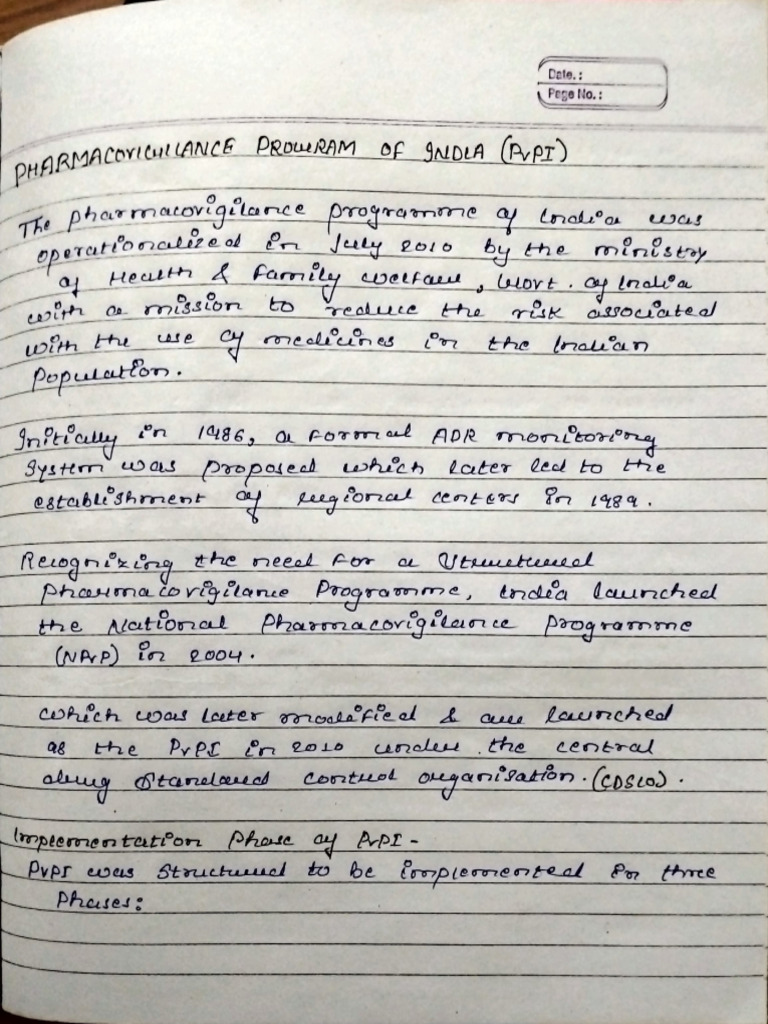 Date.:
Page No.:
PHARMACOVIGILLANCE PROGRAM OF INDIA (PvPI)
The pharmacovigilance programme of India was
operationalized in July 2010 by the ministry
of Health & family welfare, Govt. of India
with a mission to reduce the risk associated
with the use of medicines in the Indian
Population.
Initially in 1986, a formal ADR monitoring
system was proposed which later led to the
establishment of regional centers in 1989.
Recognizing the need for a structured
pharmacovigilance Programme, India launched
the National Pharmacovigilance programme
(NPvP) in 2004.
which was later modified & launched
as the PvPI in 2010 under the central
drug standard control organisation. (CDSCO).
Implementation Phase of PvPI -
PvPI was structured to be implemented in three
Phases: